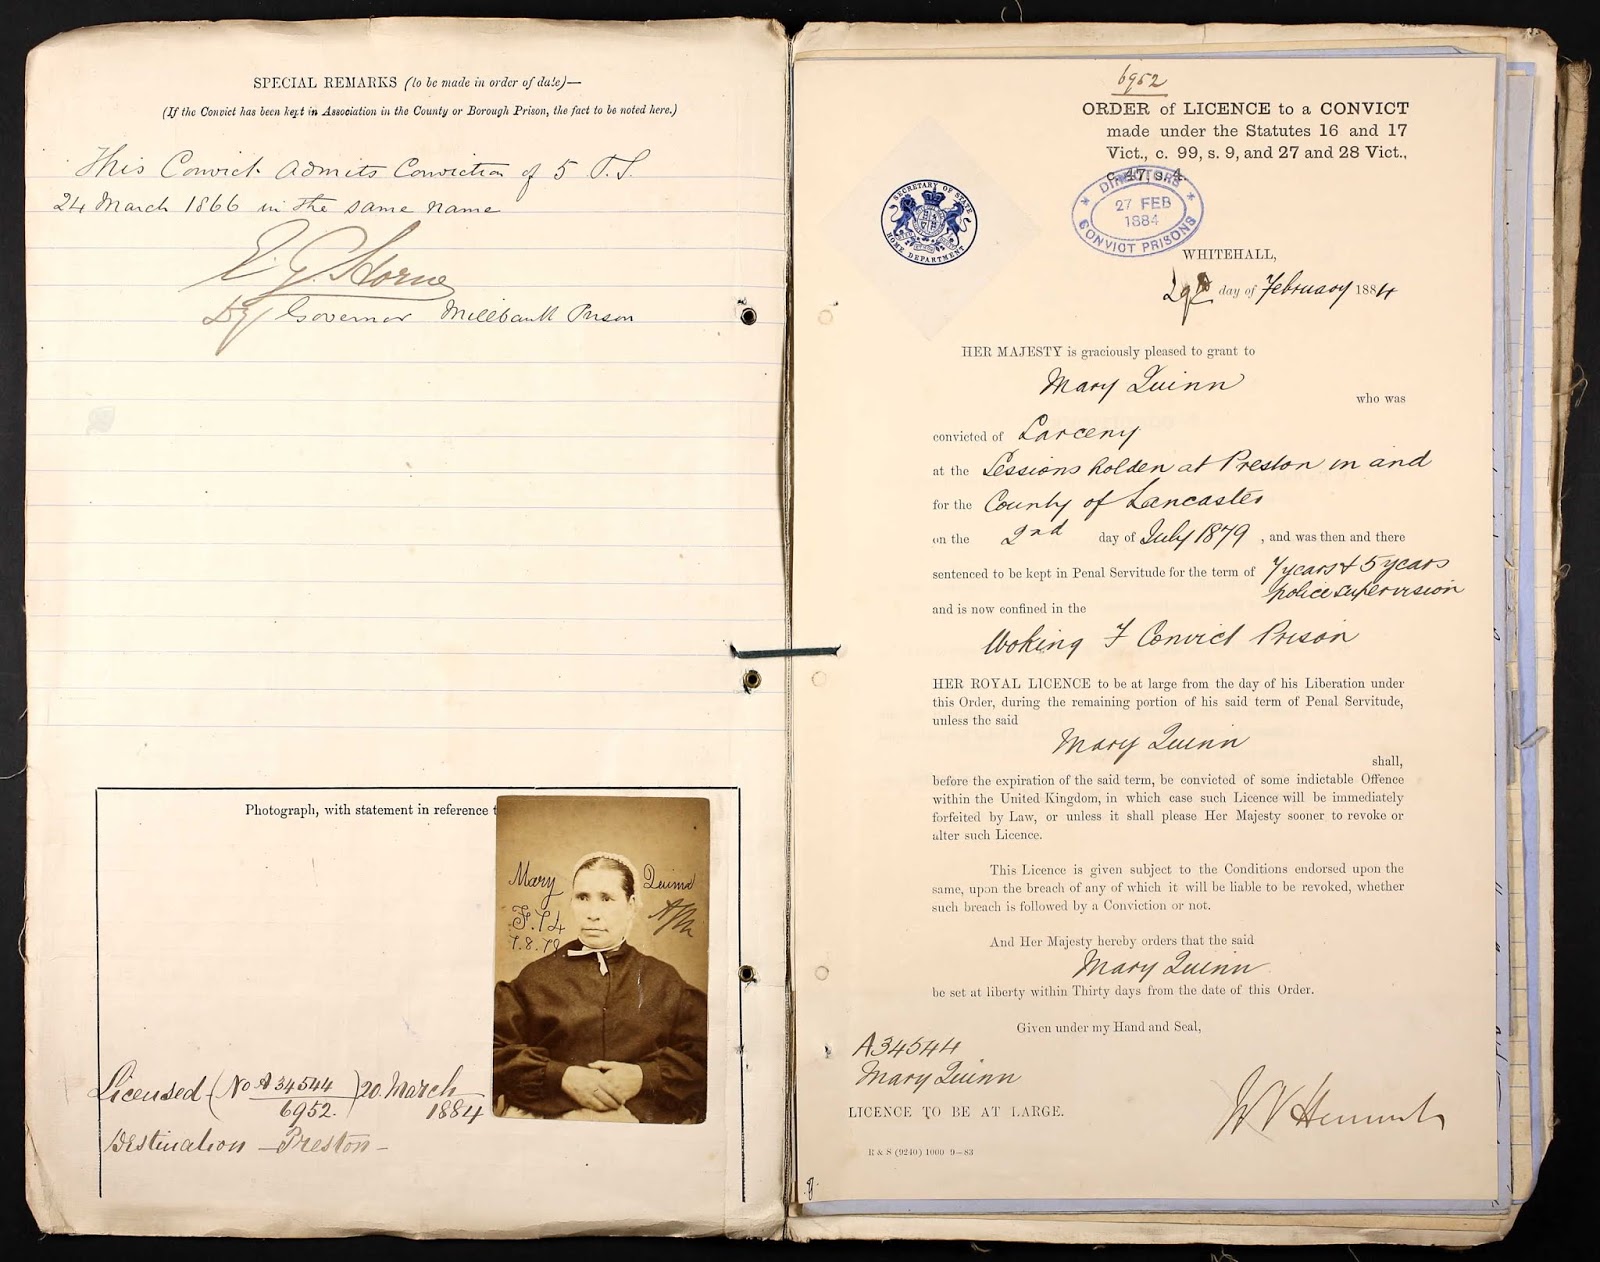 SPECIAL REMARKS (to be made in order of date)—
(If the Convict has been kept in Association in the County or Borough Prison, the fact to be noted here.)
This Convict admits Conviction of 5 P.S.
24 March 1866 in the same name
E. G. Horne
Dy Governor Millbank Prison
Photograph, with statement in reference t
Mary Quinn
F.74
7.8.79
Licensed (No A34544 / 6952.) 20. March 1884
Destination — Preston —
6952
ORDER of LICENCE to a CONVICT
made under the Statutes 16 and 17
Vict., c. 99, s. 9, and 27 and 28 Vict.,
c. 47, s. 4.
DIRECTORS
27 FEB
1884
CONVICT PRISONS
SECRETARY OF STATE
HOME DEPARTMENT
WHITEHALL,
day of February 1884
HER MAJESTY is graciously pleased to grant to
Mary Quinn
who was
convicted of Larceny
at the Sessions holden at Preston in and
for the County of Lancaster
on the 2nd day of July 1879, and was then and there
sentenced to be kept in Penal Servitude for the term of 7 years & 5 years
police supervision
and is now confined in the
Woking F Convict Prison
HER ROYAL LICENCE to be at large from the day of his Liberation under
this Order, during the remaining portion of his said term of Penal Servitude,
unless the said
Mary Quinn
shall,
before the expiration of the said term, be convicted of some indictable Offence
within the United Kingdom, in which case such Licence will be immediately
forfeited by Law, or unless it shall please Her Majesty sooner to revoke or
alter such Licence.
This Licence is given subject to the Conditions endorsed upon the
same, upon the breach of any of which it will be liable to be revoked, whether
such breach is followed by a Conviction or not.
And Her Majesty hereby orders that the said
Mary Quinn
be set at liberty within Thirty days from the date of this Order.
Given under my Hand and Seal,
A34544
Mary Quinn
LICENCE TO BE AT LARGE.
R & S (9240) 1000 9—83